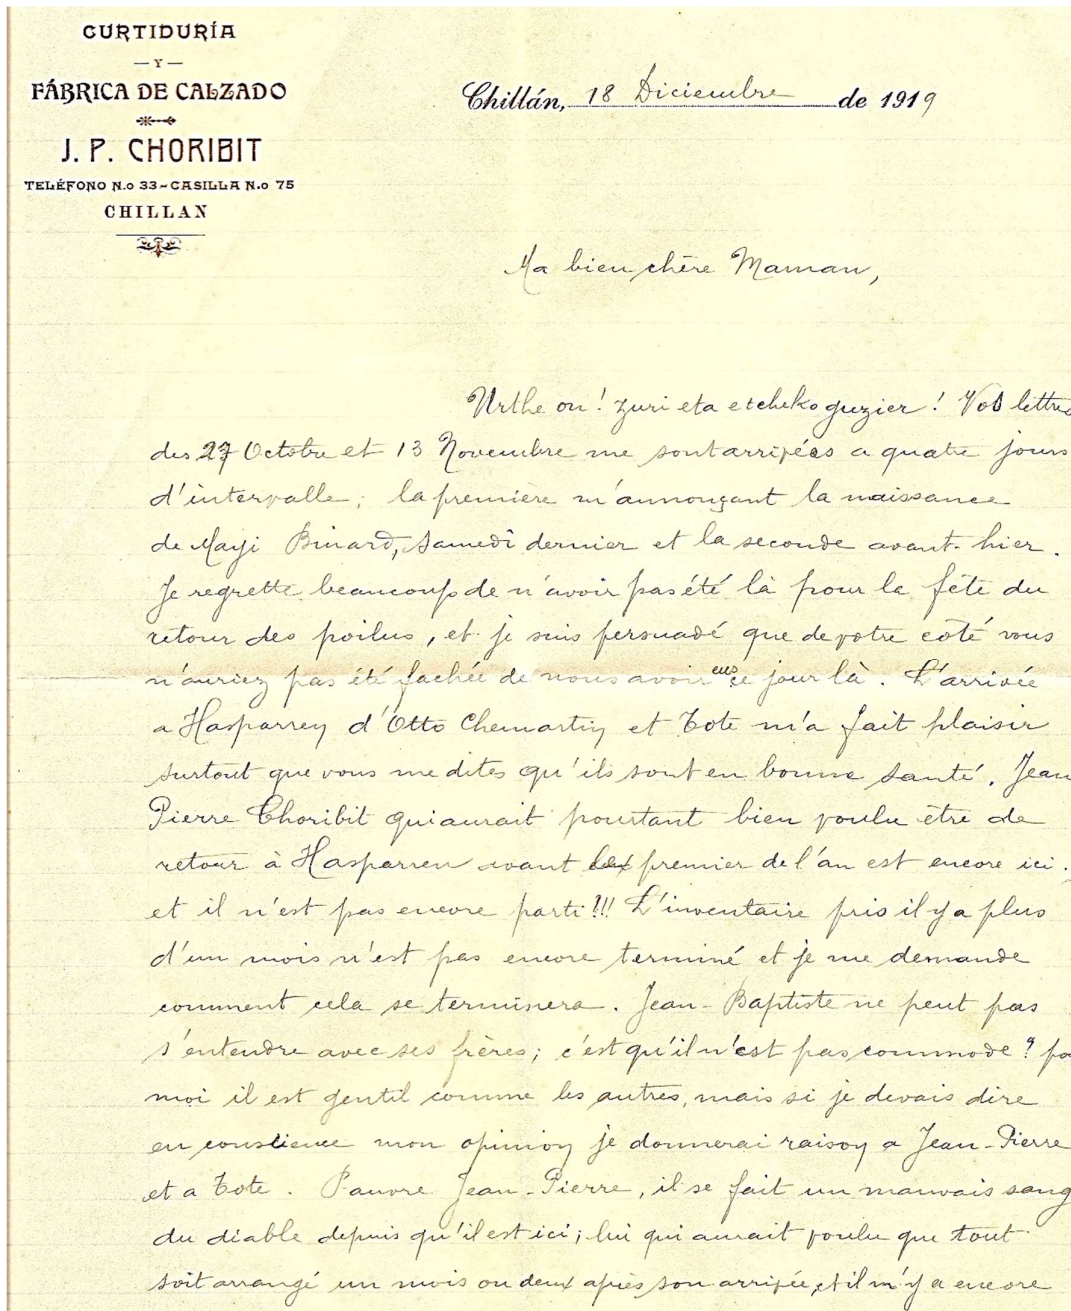 CURTIDURÍA
—Y—
FÁBRICA DE CALZADO
J. P. CHORIBIT
TELÉFONO N.o 33-CASILLA N.o 75
CHILLAN
Chillán, 18 Diciembre de 1919
Ma bien chère Maman,
Urthe on! Zuri eta etcheko guzier! Vos lettres
des 27 Octobre et 13 Novembre me sont arrivées a quatre jours
d'intervalle; la première m'annonçant la naissance
de Mayi Binard, Samedi dernier et la seconde avant-hier.
Je regrette beaucoup de n'avoir pas été là pour la fête du
retour des poilus, et je suis persuadé que de votre côté vous
n'auriez pas été fachée de nous avoir eus ce jour là. L'arrivée
a Hasparren d'Otto Chemartin et Tote m'a fait plaisir
surtout que vous me dites qu'ils sont en bonne santé. Jean
Pierre Choribit qui aurait pourtant bien voulu être de
retour à Hasparren avant le premier de l'an est encore ici.
et il n'est pas encore parti!!! L'inventaire pris il y a plus
d'un mois n'est pas encore terminé et je me demande
comment cela se terminera. Jean-Baptiste ne peut pas
s'entendre avec ses frères; c'est qu'il n'est pas commode? po
moi il est gentil comme les autres, mais si je devais dire
en conscience mon opinion je donnerai raison a Jean-Pierre
et a Tote. Pauvre Jean-Pierre, il se fait un mauvais sang
du diable depuis qu'il est ici; lui qui aurait voulu que tout
soit arrangé un mois ou deux après son arrivée, et il n'y a encore